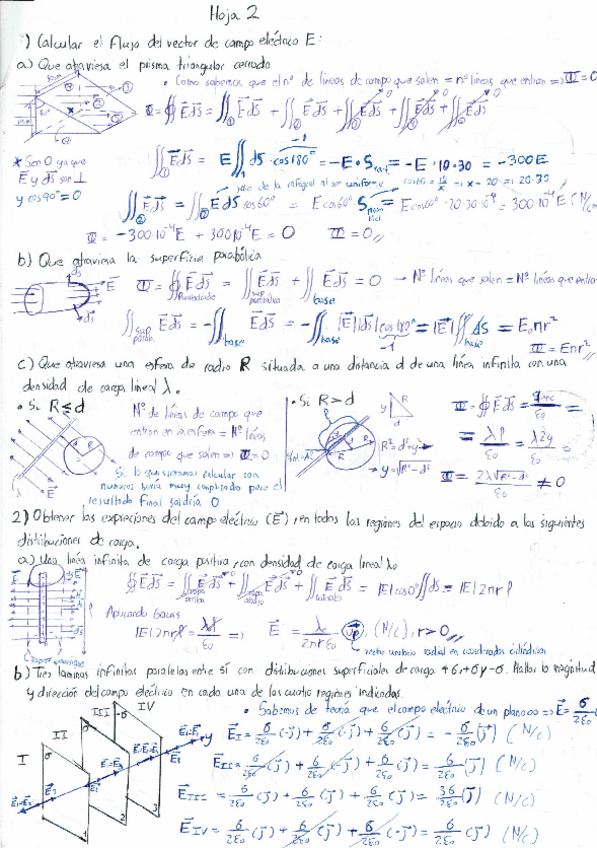 Hoja 2
1) Calcular el flujo del vector de campo eléctrico E:
a) Que atraviesa el prisma triangular cerrado
• Como sabemos que el nº de líneas de campo que salen = nº líneas que entran => Φ = 0
Φ = ∯ E⃗ds⃗ = ∬① E⃗ds⃗ + ∬② E⃗ds⃗ + ∬ E⃗ds⃗ + ∬ E⃗ds⃗ + ∬ E⃗ds⃗
* Son 0 ya que
E⃗ y ds⃗ son ⊥
y cos 90° = 0
∬① E⃗ds⃗ = E ∬ ds · cos180° = -E · S = -E · 10 · 30 = -300E
sale de la integral al ser uniforme
∬② E⃗ds⃗ = ∬② E⃗ds⃗ cos60° = E cos60° S = E cos60° · 20 · 30 · 10⁻⁴ = 300·10⁻⁴ E
Φ = -300·10⁻⁴E + 300·10⁻⁴E = 0 Φ = 0
b) Que atraviesa la superficie parabólica
Φ = ∯ E⃗ds⃗ = ∬ E⃗ds⃗ + ∬ base E⃗ds⃗ = 0 → Nº líneas que salen = Nº líneas que entran
∬ E⃗ds⃗ = -∬ base E⃗ds⃗ = -∬ base |E⃗||ds⃗| cos180° = |E⃗| ∬ base ds = E·πr²
-1
Φ = Eπr²
c) Que atraviesa una esfera de radio R situada a una distancia d de una línea infinita con una
densidad de carga lineal λ.
• Si R ≤ d
Nº de líneas de campo que
entran en la esfera = Nº líneas
de campo que salen => Φ = 0
Si lo quisieramos calcular con
numeros sería muy complicado pero el
resultado final saldría 0
• Si R > d
R² = d² + y²
→ y = √R² - d²
Φ = ∯ E⃗ds⃗ = =
= λℓ/ε₀ = λ2y/ε₀ =
Φ = 2λ√R² - d²/ε₀ ≠ 0
2) Obtener las expresiones del campo eléctrico (E⃗), en todas las regiones del espacio debido a las siguientes
distribuciones de carga.
a) Una línea infinita de carga positiva, con densidad de carga lineal λ₀
∯ E⃗ds⃗ = ∬ E⃗ds⃗ + ∬ E⃗ds⃗ + ∬ E⃗ds⃗ = |E| cos0° ∬ ds = |E| 2πrℓ
Aplicando Gauss
|E| 2πrℓ = λℓ/ε₀ => E⃗ = λ₀/2πrε₀ (N/C), r > 0
vector unitario radial en coordenadas cilíndricas
b) Tres laminas infinitas paralelas entre sí con distribuciones superficiales de carga +σ, +σ y -σ. Hallar la magnitud
y dirección del campo eléctrico en cada una de las cuatro regiones indicadas.
• Sabemos de teoría que el campo eléctrico de un plano ∞ => E⃗ =
I II III IV
σ σ -σ
y
1 2 3
E⃗I = σ/2ε₀ (-j⃗) + σ/2ε₀ (-j⃗) + σ/2ε₀ (j⃗) = -σ/2ε₀ (j⃗) (N/C)
E⃗II = σ/2ε₀ (j⃗) + σ/2ε₀ (-j⃗) + σ/2ε₀ (j⃗) = σ/2ε₀ (j⃗) (N/C)
E⃗III = σ/2ε₀ (j⃗) + σ/2ε₀ (j⃗) + σ/2ε₀ (j⃗) = 3σ/2ε₀ (j⃗) (N/C)
E⃗IV = σ/2ε₀ (j⃗) + σ/2ε₀ (j⃗) + σ/2ε₀ (-j⃗) = σ/2ε₀ (j⃗) (N/C)